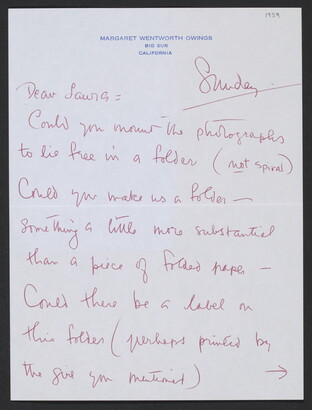 1959
MARGARET WENTWORTH OWINGS
BIG SUR
CALIFORNIA
Sunday
Dear Laura =
Could you mount the photographs
to lie free in a folder (not spiral)
Could you make us a folder —
something a little more substantial
than a piece of folded paper —
Could there be a label on
this folder (perhaps printed by
the you mentioned) →